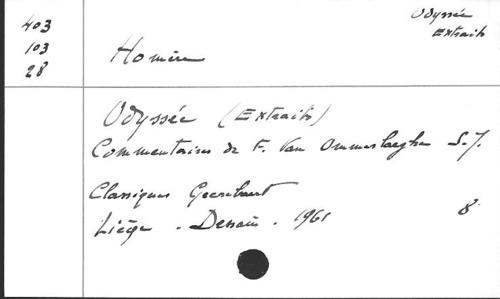 403
103
28
Odyssée
Extraits
Homère
Odyssée (Extraits)
Commentaires de F. Van Ommeslaeghe S.J.
Classiques
Liège - Dessain - 1961
8